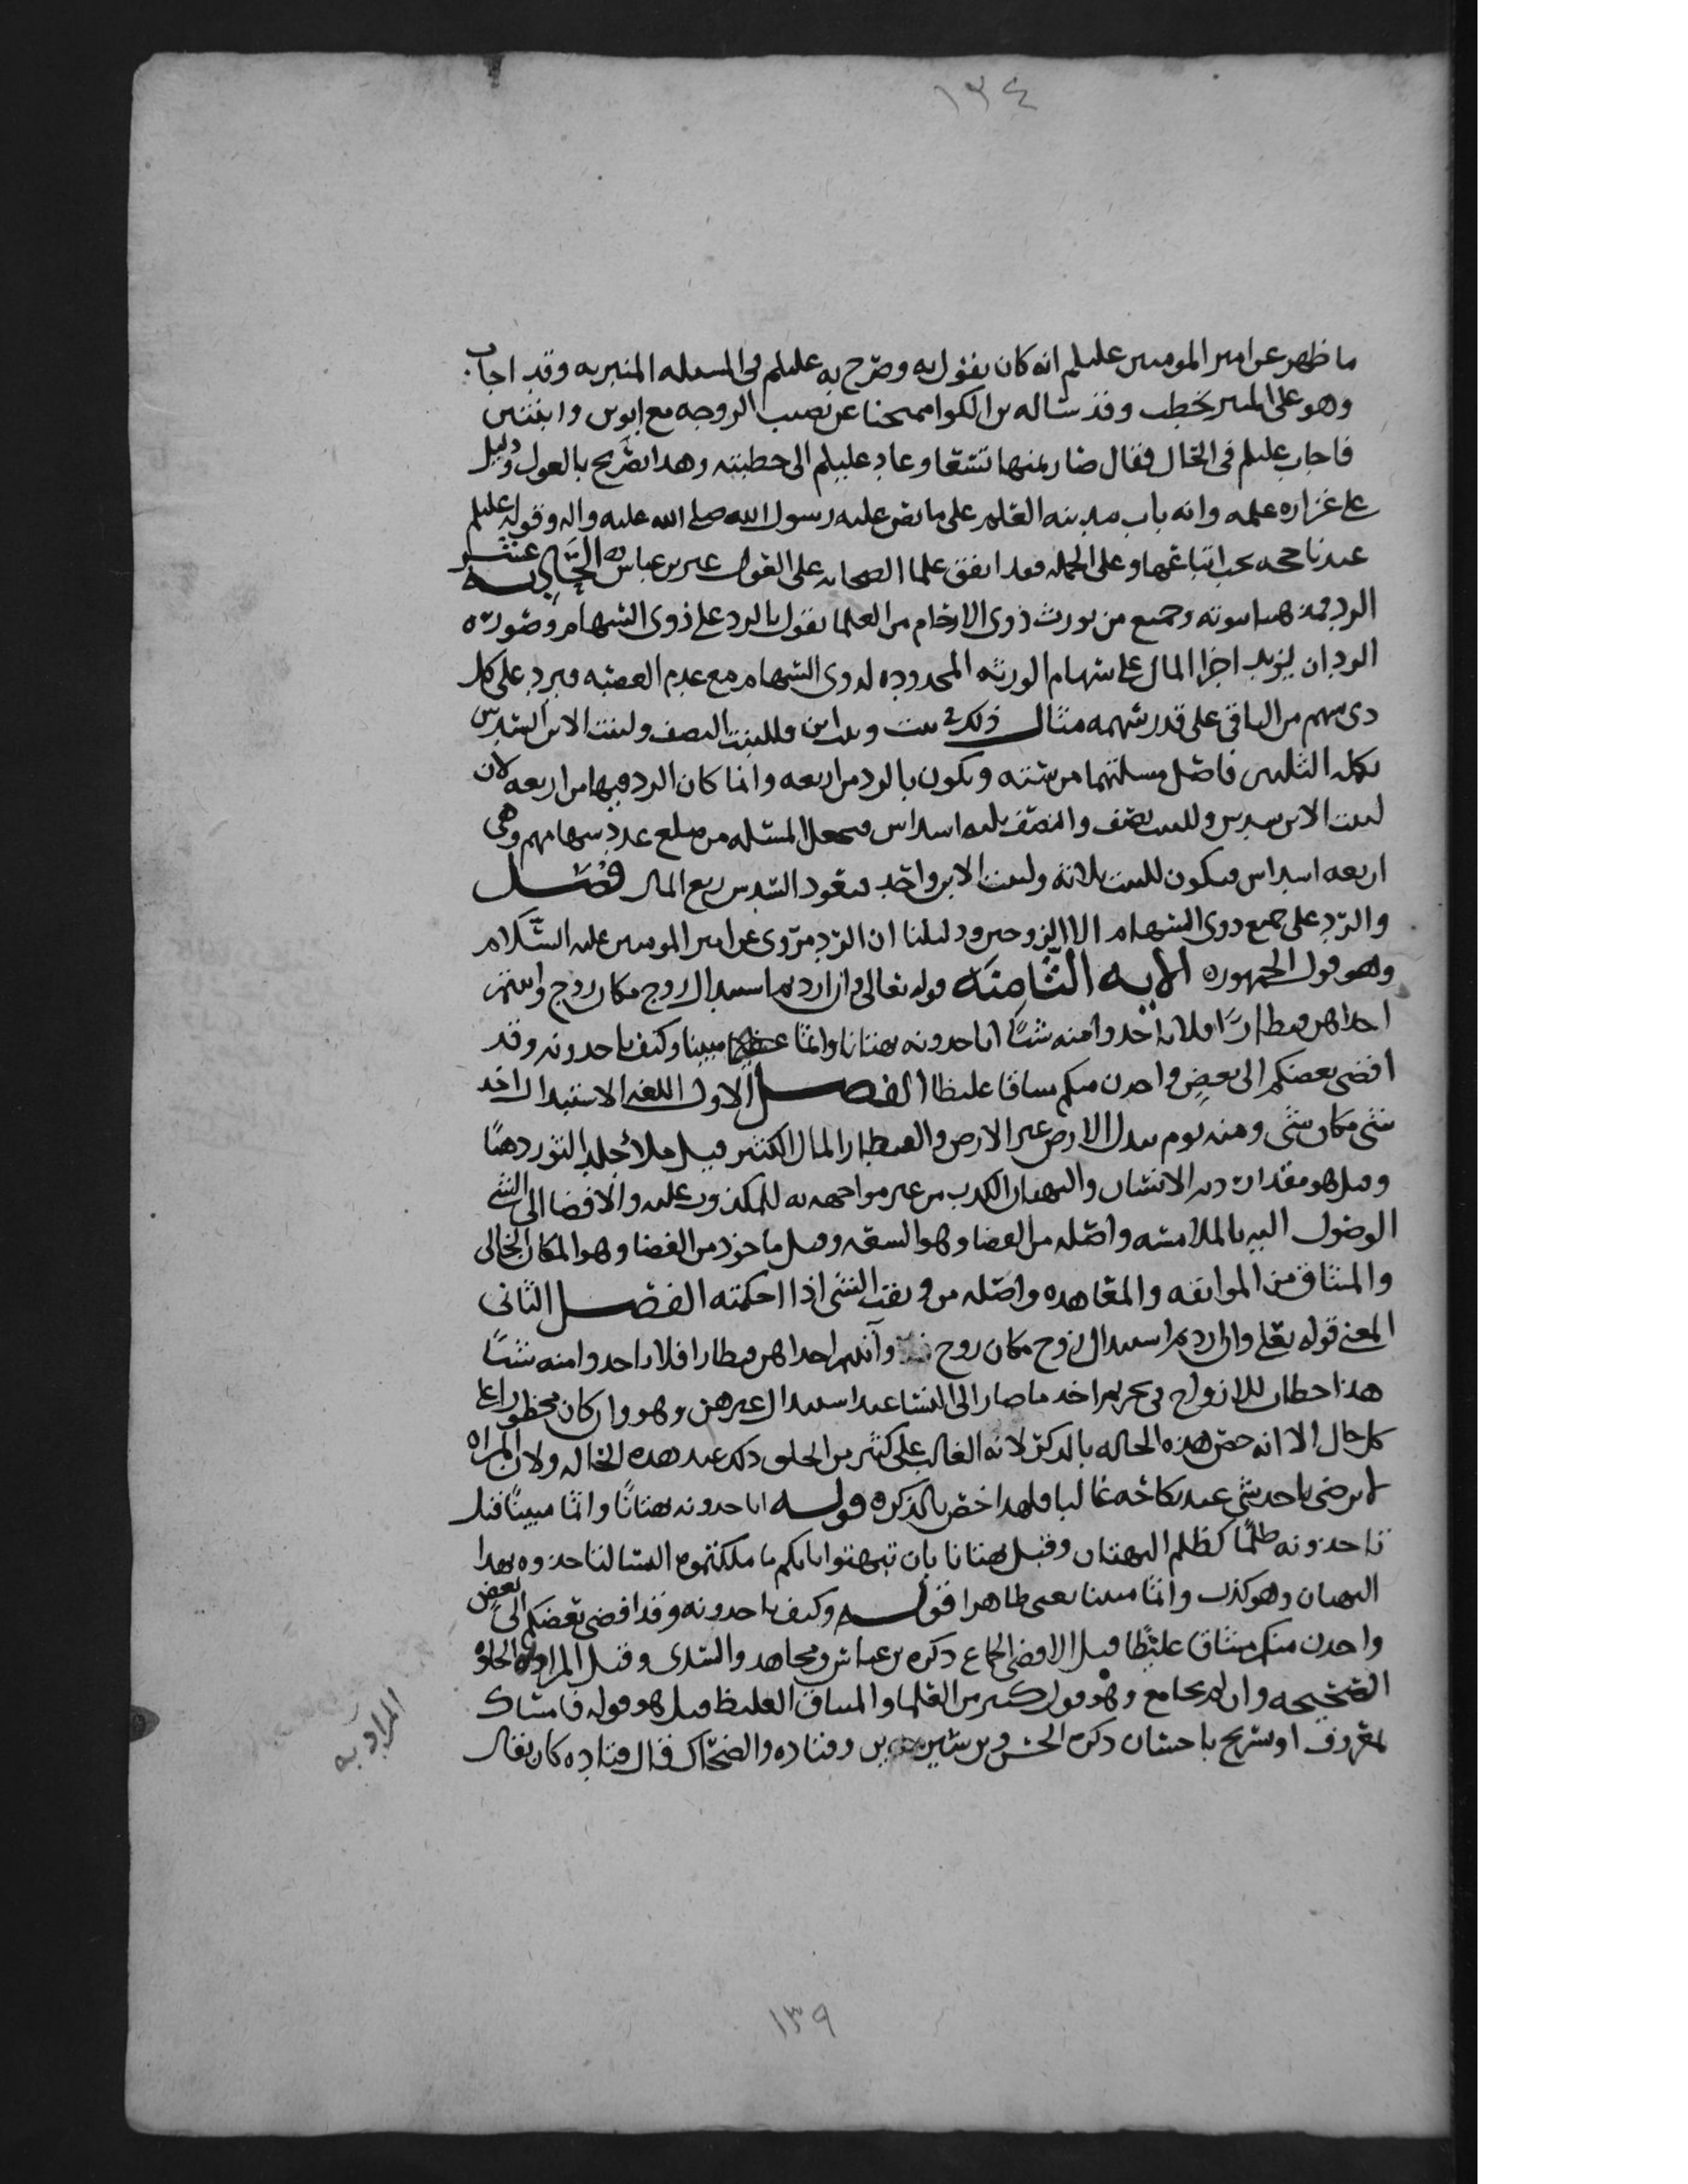 ١٣٤
ما ظهر عن امير المومنين عليلم انه كان يقول به وصرح به عليلم في المسله المنبريه وقد اجاب
وهو على المنبر يخطب وقد ساله بن الكوا ممتحنا عن نصيب الزوجه مع ابوين وابنتين
فاجاب عليلم في الحال فقال صار ثمنها تسعا وعاد عليلم الى خطبته وهذا تصريح بالعول ودليل
على غزاره علمه وانه باب مدينه العلم على ما نص عليه رسول الله صلى الله عليه واله وقوله عليلم
عندنا حجه يجب اتباعها وعلى الجمله فقد اتفق علما الصحابه على القول غير بن عباس الحاديه عشر
الرد فمذهبنا ثبوته وجميع من يورث ذوي الارحام من العلما يقول بالرد على ذوي السهام وصورة
الرد ان يزيد اجزا المال على سهام الورثه المحدوده لذوي السهام مع عدم العصبه فيرد على كل
ذي سهم من الباقي على قدر سهمه مثال ذلك بنت وبنت ابن فللبنت النصف ولبنت الابن السدس
تكمله الثلثين فاصل مسلتهما من سته وتكون بالرد من اربعه وانما كان الرد فيها من اربعه لان
لبنت الابن سدس وللبنت نصف والنصف ثلثه اسداس فيجعل المسله من مبلغ عدد سهامهم وهي
اربعه اسداس فيكون للبنت ثلاثة ولبنت الابن واحد فيعود السدس ربع المال فصل
والرد على جميع ذوي السهام الا الزوجين ودليلنا ان الرد مروي عن امير المومنين عليه السلام
وهو قول الجمهور الايه الثامنه قوله تعالى وان اردتم استبدال زوج مكان زوج واتيتم
احداهن قنطارا فلا تاخذوا منه شيا اتاخذونه بهتانا واثما مبينا وكيف تاخذونه وقد
افضى بعضكم الى بعض واخذن منكم ميثاقا غليظا الفصل الاول اللغه الاستبدال اخذ
شي مكان شي ومنه يوم تبدل الارض غير الارض والقنطار المال الكثير قيل ملا جلد الثور ذهبا
وقيل هو مقدار ديه الانسان والبهتان الكذب من غير مواجهه به للمكذوب عليه والافضا الى الشي
الوصول اليه بالملامسه واصله من الفضا وهو السعه وقيل ماخوذ من الفضا وهو المكان الخالي
والميثاق من المواثقه والمعاهده واصله من وثقت الشي اذا احكمته الفصل الثاني
المعنى قوله تعلى وان اردتم استبدال زوج مكان زوج واتيتم احداهن قنطارا فلا تاخذوا منه شيا
هذا خطاب للازواج في تحريم اخذ ما صار الى النسا عند استبدال غيرهن وهو وان كان محظورا على
كل حال الا انه خص هذه الحاله بالذكر لانه الغالب على كثير من الخلق ذلك عند هذه الحاله ولان المراه
لا ترضى باخذ شي عند نكاحه غالبا فلهذا خص بالذكر قوله اتاخذونه بهتانا واثما مبينا قيل
تاخذونه ظلما كظلم البهتان وقيل بهتانا بان تبهتوا انكم ما ملكتموه النسا لتاخذوه بهذا
البهتان وهو كذب واثما مبينا يعني ظاهرا قوله وكيف تاخذونه وقد افضى بعضكم الى بعض
واخذن منكم ميثاق غليظا قيل الافضى الجماع ذكره بن عباس ومجاهد والسدي وقيل المراد به الخلوه
الصحيحه وان لم يجامع وهو قول كثير من العلما والميثاق الغليظ قيل هو قوله فامساك
بمعروف او تسريح باحسان ذكره الحسن وبن سيرين وقتاده والضحاك قال قتاده كان يقال
المراد به
١٣٩